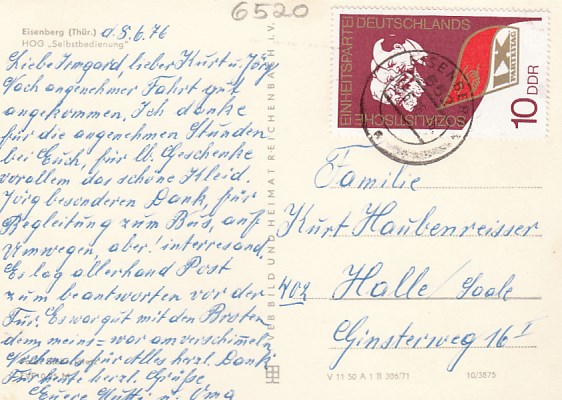 Eisenberg (Thür.)
HOG „Selbstbedienung"
d. 5.6.76
6520
Liebe Irmgard, lieber Kurt u. Jörg
Nach angenehmer Fahrt gut
angekommen. Ich danke
für die angenehmen Stunden
bei Euch, für ll. Geschenke
vorallem das schöne Kleid.
Jörg besonderen Dank, für
Begleitung zum Bus, auf
Umwegen, aber interresand.
Es lag allerhand Post
zum beantworten vor der
Tür. Es war gut mit den Broten,
denn meins = war am verschimmeln
Nochmals für Alles herzl. Dank
Für heute herzl. Grüße,
Euere Mutti u. Oma
VEB BILD UND HEIMAT REICHENBACH I. V.
SOZIALISTISCHE
EINHEITSPARTEI DEUTSCHLANDS
IX.
PARTEITAG
10 DDR
EISENBERG
Familie
Kurt Haubenreisser
402 Halle/Saale
Ginsterweg 16 I
V 11 50 A 1 B 306/71
10/3875